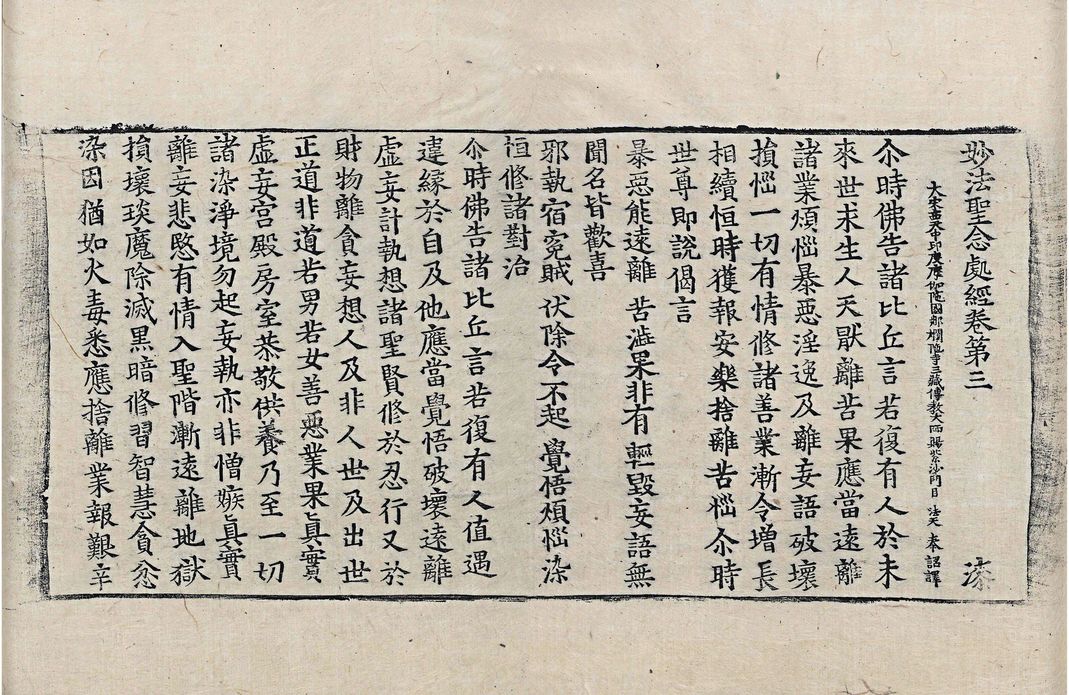 妙法聖念處經卷第三 漆
大宋 中印度摩伽陁國那爛陁寺三藏傳教大師賜紫沙門臣 法天 奉 詔譯
尒時佛告諸比丘言若復有人於未
來世求生人天厭離苦果應當遠離
諸業煩惱暴惡淫逸及離妄語破壞
損惱一切有情修諸善業漸令增長
相續恒時獲報安樂捨離苦惱尒時
世尊即說偈言
暴惡能遠離 苦澁果非有 輕毀妄語無
聞名皆歡喜
邪執宿寃賊 伏除令不起 覺悟煩惱染
恒修諸對治
尒時佛告諸比丘言若復有人值遇
違緣於自及他應當覺悟破壞遠離
虛妄計執想諸聖賢修於忍行又於
財物離貪妄想人及非人世及出世
正道非道若男若女善惡業果眞實
虛妄宮殿房室恭敬供養乃至一切
諸染淨境勿起妄執亦非憎嫉眞實
離妄悲愍有情入聖階漸遠離地獄
損壞琰魔除滅黑暗修習智慧貪忿
染因猶如火毒悉應捨離業報艱辛